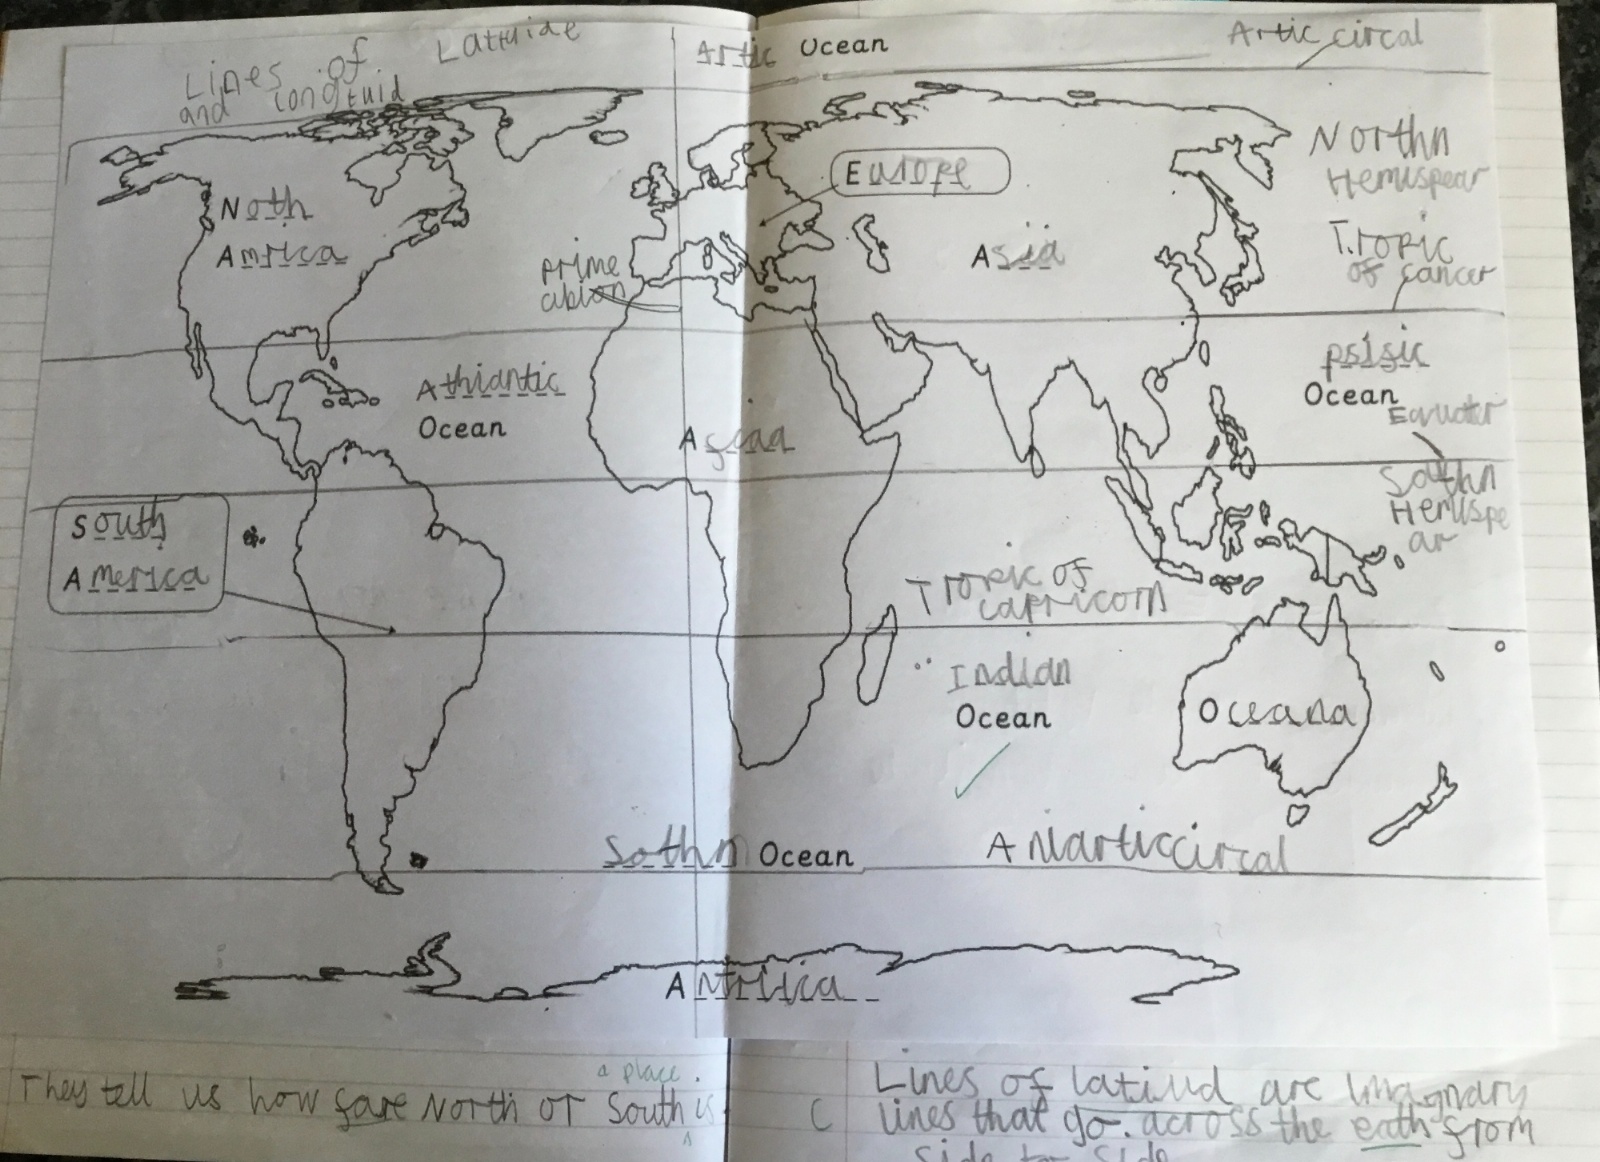 Lines of Lattuide
and longtuid
Artic Ocean
Artic circal
Northn
Hemispear
Europe
North
Amrica
Asia
Tropic
of cancer
prime
Athlantic
Ocean
psisic
Ocean
Equator
Sothn
Hemispe
ar
South
America
Tropic of
capricorn
Indian
Ocean
Oceana
Sothn Ocean
Antarticcircal
They tell us how fare North or South is
a place.
C
Lines of latiud are Imagnary
lines that go. across the eath from
side to side